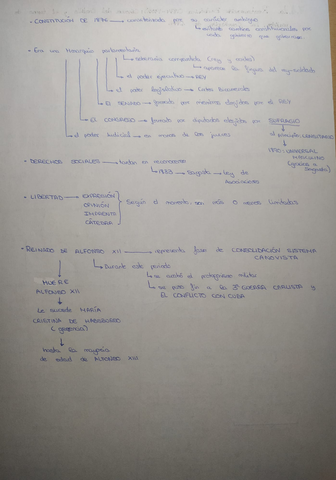 - CONSTITUCIÓN DE 1876 → caracterizada por su carácter ambiguo
→ varios gobiernos que gobiernen
- Era una Monarquía parlamentaria
→ soberanía compartida (rey y cortes)
→ el poder ejecutivo → REY
→ el poder legislativo → Cortes bicamerales
→ EL SENADO → formado por miembros elegidos por el REY
→ EL CONGRESO → formado por diputados elegidos por SUFRAGIO
→ el poder judicial → en manos de los jueces
al principio CENSITARIO
1890: UNIVERSAL MASCULINO
- DERECHOS SOCIALES → todos se reconocieron
→ 1887 → Ley de Asociaciones
- LIBERTAD → EXPRESIÓN
OPINIÓN
IMPRENTA
CÁTEDRA
Según el momento son más o menos limitados
- REINADO DE ALFONSO XII → representa fase de CONSOLIDACIÓN SISTEMA CANOVISTA
→ Durante este periodo
→ se acabó el protagonismo militar
→ se puso fin a la 3ª GUERRA CARLISTA y EL CONFLICTO CON CUBA
MUERE ALFONSO XII
Le sucede MARÍA CRISTINA DE HABSBURGO
(regencia)
hasta la mayoría de edad de ALFONSO XIII